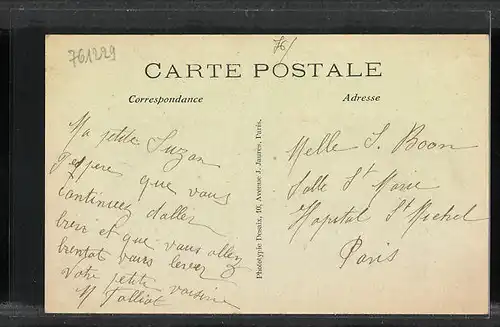 761229
76/
CARTE POSTALE
Correspondance
Adresse
Ma petite Suzon
J'espère que vous
continuez d'aller
bien et que vous allez
bientot vous lever
Votre petite voisine
M Talliot
Phototypie Desaix, 40, Avenue J. Jaurès, Paris.
Melle S. Boon
Salle St Marie
Hopital St Michel
Paris